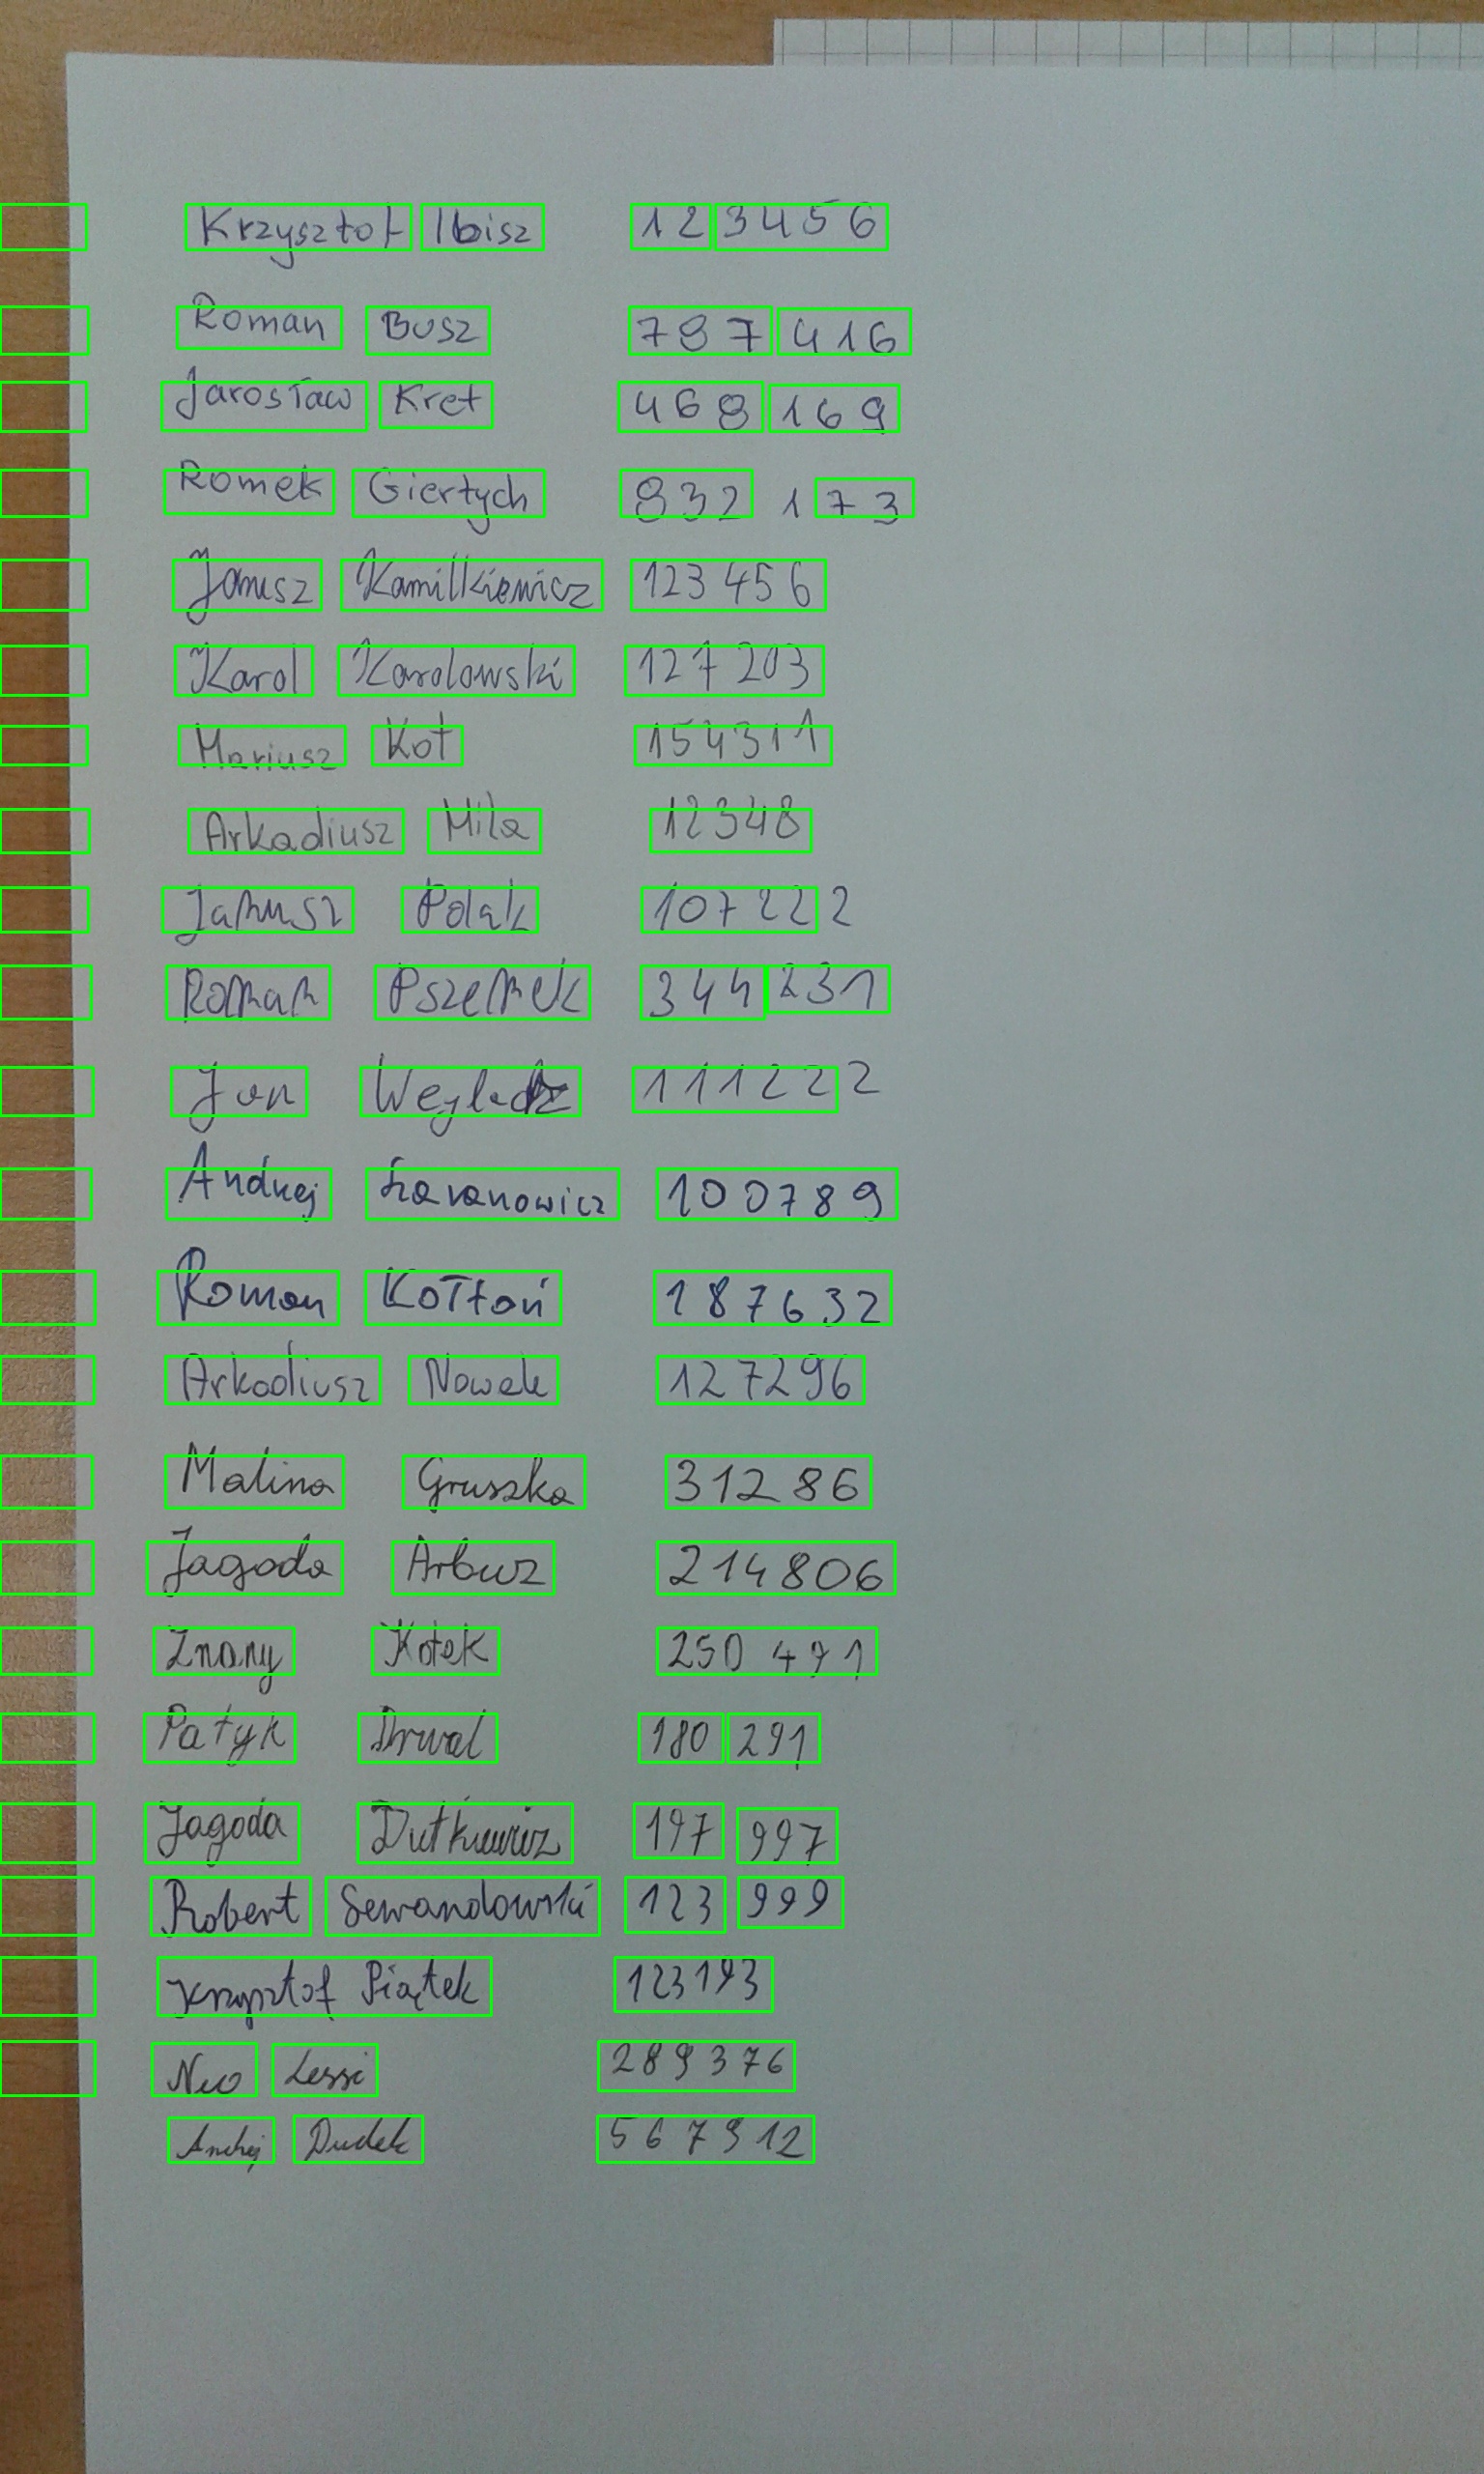 Krzysztof Ibisz 123456
Roman Busz 797 416
Jarosław Kret 468 169
Romek Giertych 832 173
Janusz Kamilkiewicz 123 456
Karol Karolowski 127 203
Mariusz Kot 154311
Arkadiusz Mila 12348
Janusz Polak 107222
Roman Pszemek 344 231
Jan 1 1 1 2 2 2
Andrzej Szaranowicz 100789
Roman Kołtoń 187632
Arkadiusz Nowak 127296
Malina Gruszka 312 86
Jagoda Arbuz 214806
Znany Kotek 250 491
Patyk Drwal 180 291
Jagoda Dutkiewicz 197 997
Robert Lewandowski 123 999
Krzysztof Piątek 123193
Neo Lessi 289376
Andrzej Dudek 567912